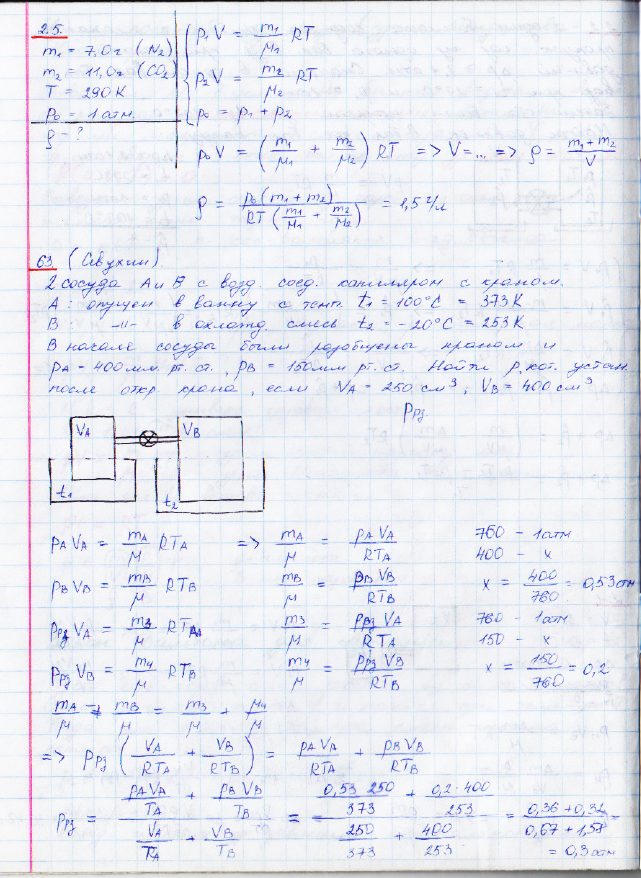 2.5.
m₁ = 7,0г (N₂)
m₂ = 11,0г (CO₂)
T = 290K
p₀ = 1 атм.
ρ - ?
p₁V = m₁/μ₁ RT
p₂V = m₂/μ₂ RT
p₀ = p₁ + p₂
p₀V = (m₁/μ₁ + m₂/μ₂) RT => V = ... => ρ = (m₁ + m₂)/V
ρ = p₀(m₁ + m₂)/(RT(m₁/μ₁ + m₂/μ₂)) = 1,5 г/л
63. (Сивухин)
2 сосуда A и B с возд. соед. капилляром с краном.
A: опущен в ванну с темп. t₁ = 100°C = 373K
B: -"- в охлажд. смесь t₂ = -20°C = 253K
В начале сосуды были разобщены краном и
pA = 400мм. рт. ст., pB = 150мм рт. ст. Найти p, кот. устан.
после откр. крана, если VA = 250 см³, VB = 400 см³
Pрз
VA VB
t₁ t₂
pAVA = mA/μ RTA => mA/μ = pAVA/RTA 760 - 1атм
400 - x
pBVB = mB/μ RTB mB/μ = pBVB/RTB x = 400/760 = 0,53атм
PрзVA = m3/μ RTA m3/μ = PрзVA/RTA 760 - 1атм
150 - x
PрзVB = m4/μ RTB m4/μ = PрзVB/RTB x = 150/760 = 0,2
mA/μ + mB/μ = m3/μ + μ4/μ
=> Pрз (VA/RTA + VB/RTB) = pAVA/RTA + pBVB/RTB
Pрз = (pAVA/TA + pBVB/TB)/(VA/TA + VB/TB) = (0,53·250/373 + 0,2·400/253)/(250/373 + 400/253) = (0,36 + 0,32)/(0,67 + 1,58) =
= 0,3атм